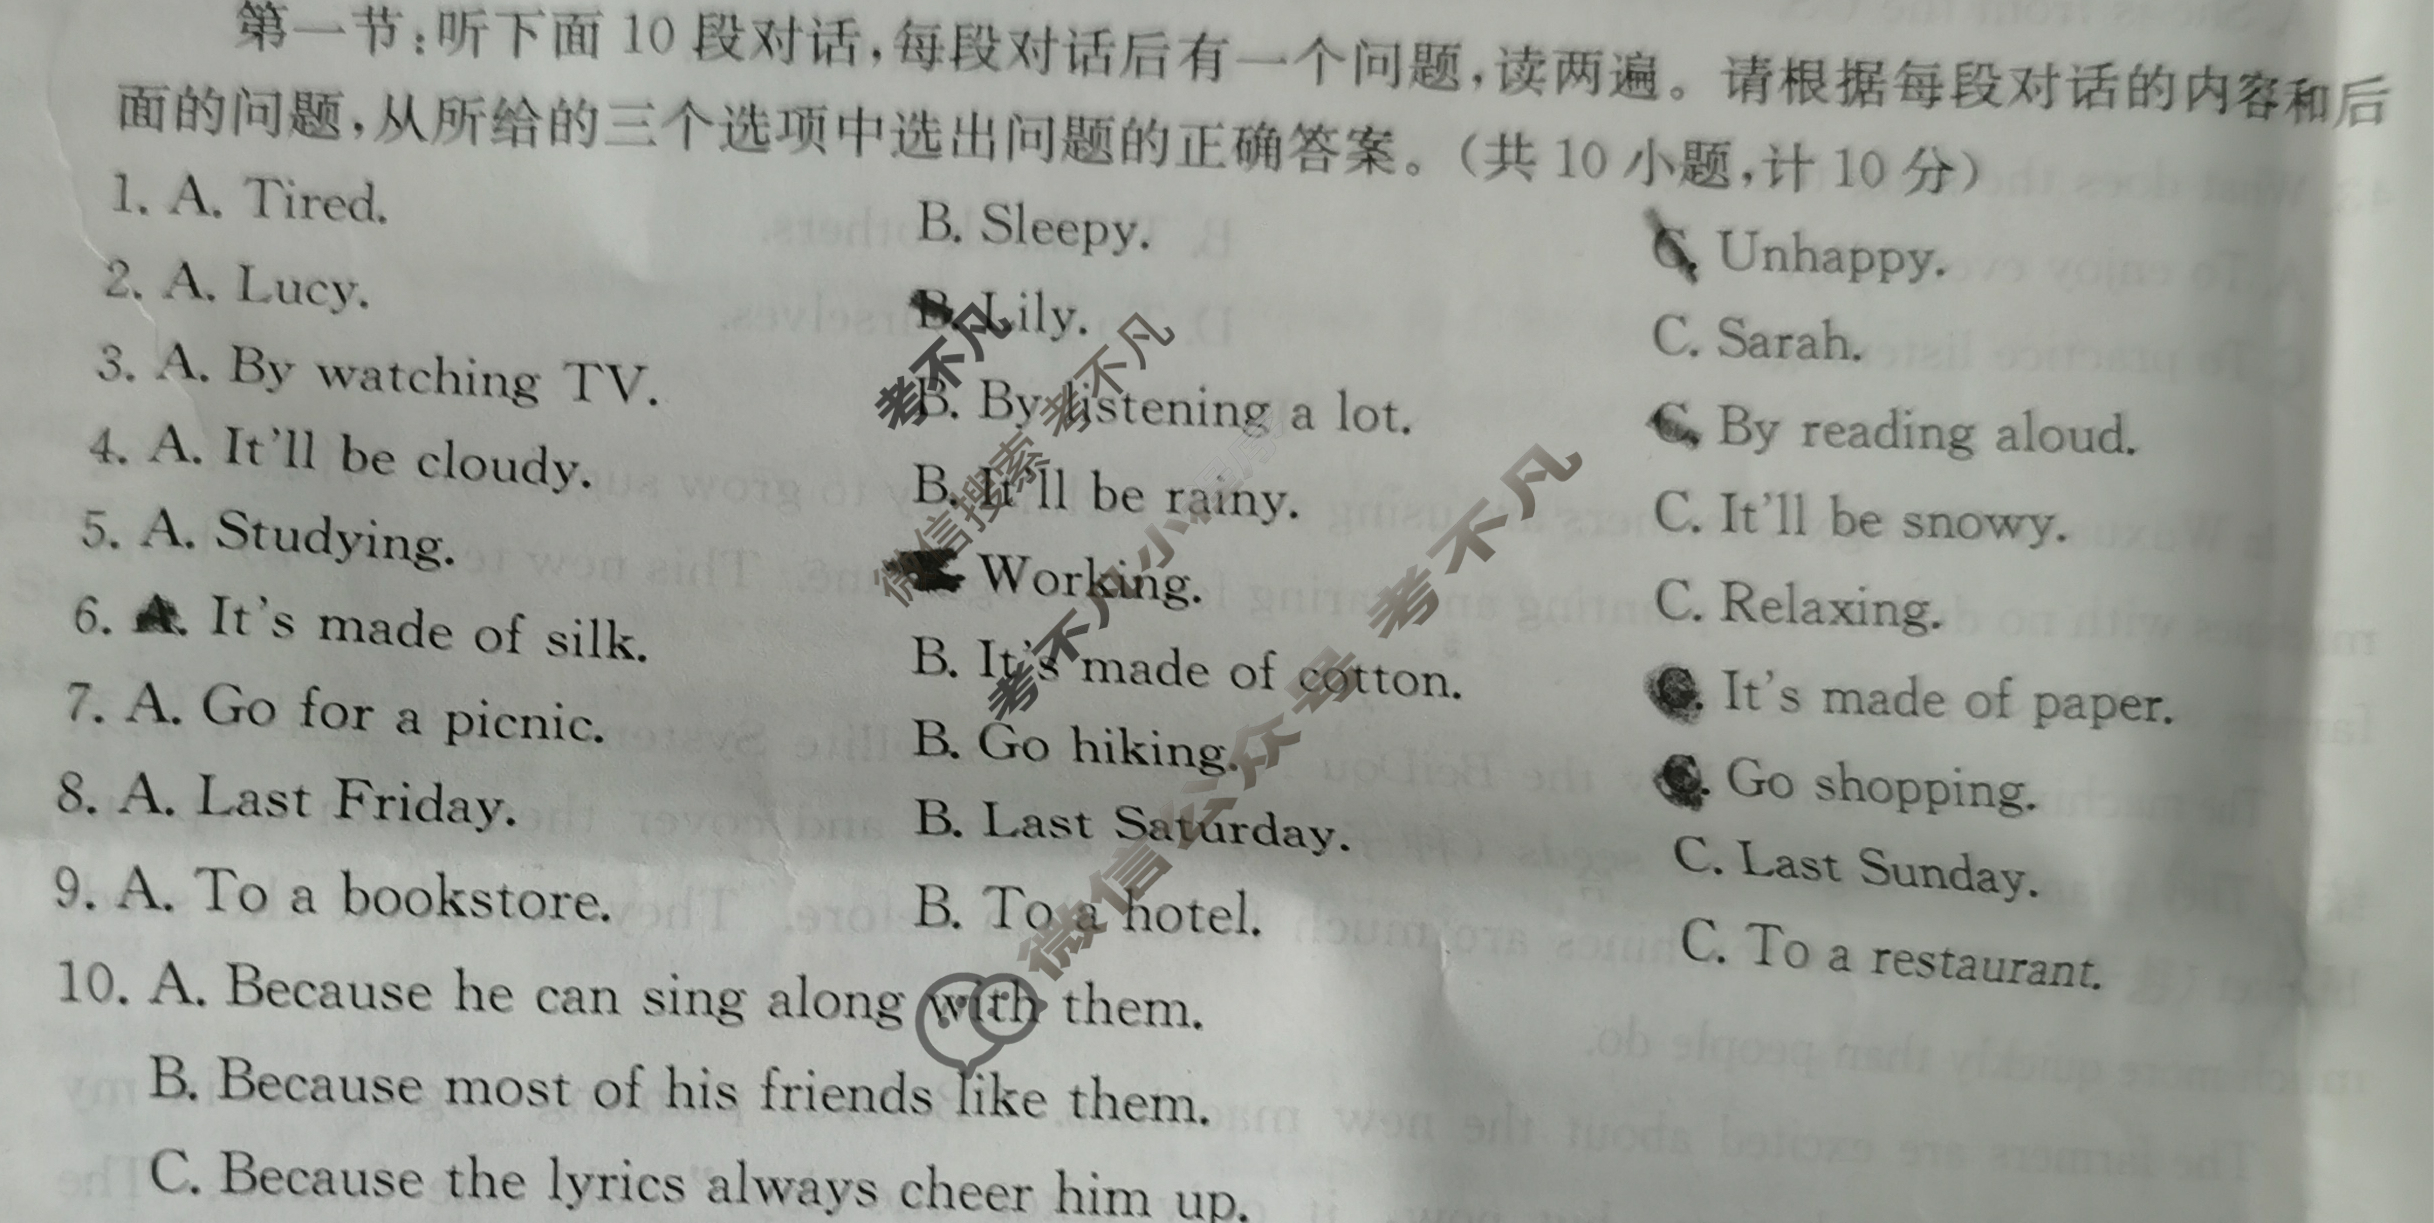 第一节:听下面 10 段对话,每段对话后有一个问题,读两遍。请根据每段对话的内容和后
面的问题,从所给的三个选项中选出问题的正确答案。(共 10 小题,计 10 分)
1. A. Tired. B. Sleepy. C. Unhappy.
2. A. Lucy. B. Lily. C. Sarah.
3. A. By watching TV. B. By listening a lot. C. By reading aloud.
4. A. It'll be cloudy. B. It'll be rainy. C. It'll be snowy.
5. A. Studying. Working. C. Relaxing.
6. A. It's made of silk. B. It's made of cotton. C. It's made of paper.
7. A. Go for a picnic. B. Go hiking. C. Go shopping.
8. A. Last Friday. B. Last Saturday. C. Last Sunday.
9. A. To a bookstore. B. To a hotel. C. To a restaurant.
10. A. Because he can sing along with them.
B. Because most of his friends like them.
C. Because the lyrics always cheer him up.
考不凡
微信搜索 考不凡
考不凡小程序
微信公众号 考不凡